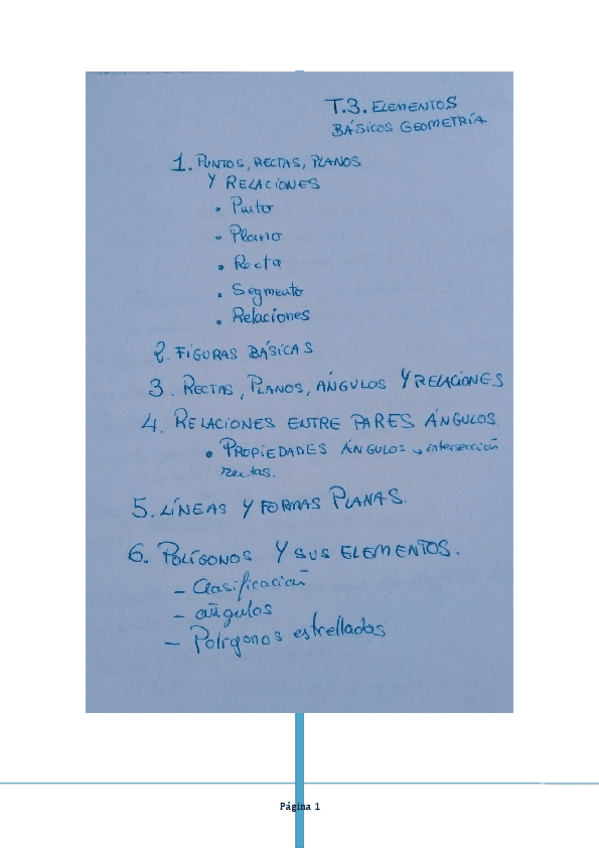 T.3. ELEMENTOS
BÁSICOS GEOMETRÍA
1. PUNTOS, RECTAS, PLANOS
Y RELACIONES
• Punto
• Plano
• Recta
• Segmento
• Relaciones
2. FIGURAS BÁSICAS
3. RECTAS, PLANOS, ÁNGULOS Y RELACIONES
4. RELACIONES ENTRE PARES ÁNGULOS.
• PROPIEDADES ÁNGULOS → intersección
rectas.
5. LÍNEAS Y FORMAS PLANAS.
6. POLÍGONOS Y SUS ELEMENTOS.
– Clasificación
– ángulos
– Polígonos estrellados
Página 1